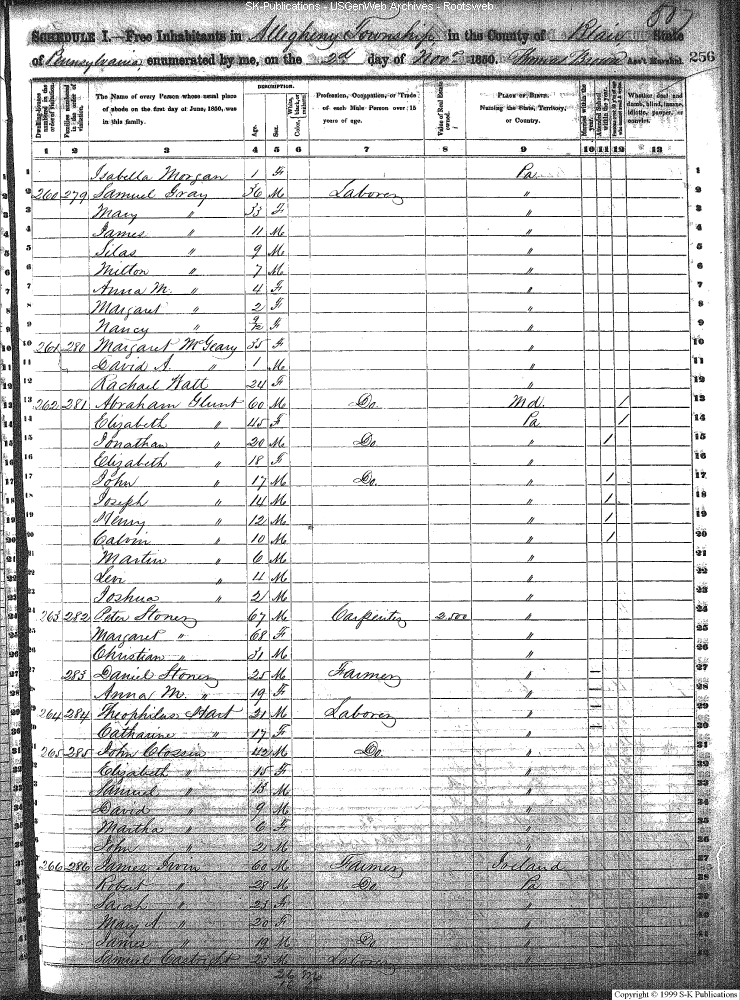 SK-Publications - USGenWeb Archives - Rootsweb
507
SCHEDULE I.—Free Inhabitants in Allegheny Township in the County of Blair State
of Pennsylvania enumerated by me, on the 2d day of Novr 1850. Thomas Ass't Marshal. 256
DESCRIPTION.
Dwelling-houses numbered in the order of visitation. Families numbered in the order of visitation. The Name of every Person whose usual place of abode on the first day of June, 1850, was in this family. Age. Sex. White, black, or mulatto. Color, Profession, Occupation, or Trade of each Male Person over 15 years of age. Value of Real Estate owned. PLACE OF BIRTH. Naming the State, Territory, or Country. Married within the year. Attended School within the year. Whether deaf and dumb, blind, insane, idiotic, pauper, or convict.
1 2 3 4 5 6 7 8 9 10 11 12 13
1 Isabella Morgan 1 F Pa 1
2 260 279 Samuel Gray 36 M Laborer " 2
3 Mary " 33 F " 3
4 James " 11 M " 4
5 Silas " 9 M " 5
6 Milton " 7 M " 6
7 Anna M. " 4 F " 7
8 Margaret " 2 F " 8
9 Nancy " F " 9
10 261 280 Margaret McGeary 35 F " 10
11 David A. " 1 M " 11
12 Rachael Walt 24 F " 12
13 262 281 Abraham Glunt 60 M Do Md. / 13
14 Elizabeth " 45 F Pa / 14
15 Jonathan " 20 M Do " / 15
16 Elizabeth " 18 F " 16
17 John " 17 M Do " / 17
18 Joseph " 14 M " / 18
19 Henry " 12 M " / 19
20 Calvin " 10 M " / 20
21 Martin " 6 M " 21
22 Levi " 4 M " 22
23 Joshua " 2 M " 23
24 263 282 Peter Stoner 67 M Carpenter 2500 " 24
25 Margaret " 68 F " 25
26 Christian " 31 M " 26
27 283 Daniel Stoner 25 M Farmer " 27
28 Anna M. " 19 F " 28
29 264 284 Theophilus Hart 21 M Laborer " 29
30 Catharine " 17 F " 30
31 265 285 John Clossin 42 M Do. " 31
32 Elizabeth " 15 F " 32
33 Samuel " 13 M " 33
34 David " 9 M " 34
35 Martha " 6 F " 35
36 John " 2 M " 36
37 266 286 James Irvin 60 M Farmer Ireland 37
38 Robert " 28 M Do Pa 38
39 Sarah " F " 39
40 Mary A " 20 F " 40
41 James " 19 M Do " 41
42 Samuel 25 M Laborer " 42
26 M
Copyright © 1999 S-K Publications